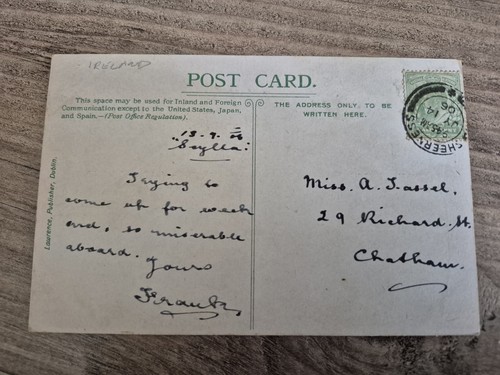 IRELAND
POST CARD.
This space may be used for Inland and Foreign
Communication except to the United States, Japan,
and Spain.—(Post Office Regulation).
THE ADDRESS ONLY TO BE
WRITTEN HERE.
Lawrence, Publisher, Dublin.
13.7.06
Scylla.
Trying to
come up for week
end, so miserable
aboard.
Yours
Miss. A. Tassel,
29 Richard. St.
Chatham.
SHEERNESS
JY 14
06